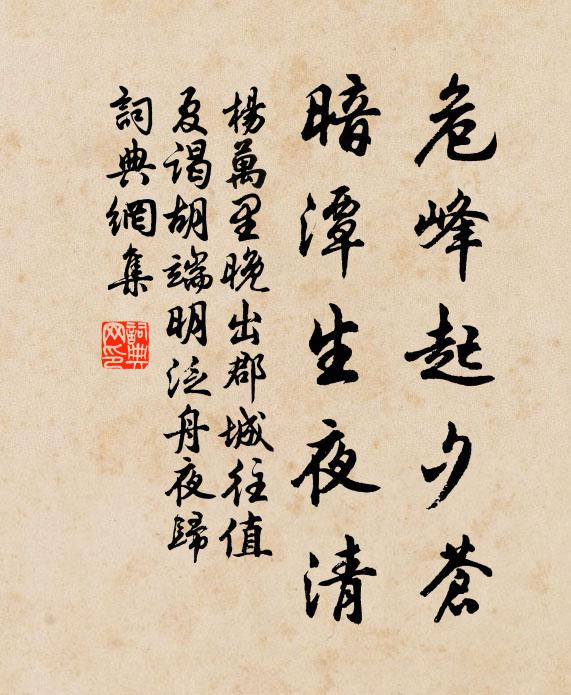 危峰起夕蒼
暗潭生夜清
楊萬里晚出郡城往值
夏謁胡端明泛舟夜歸
詞典網集
詞典
网印